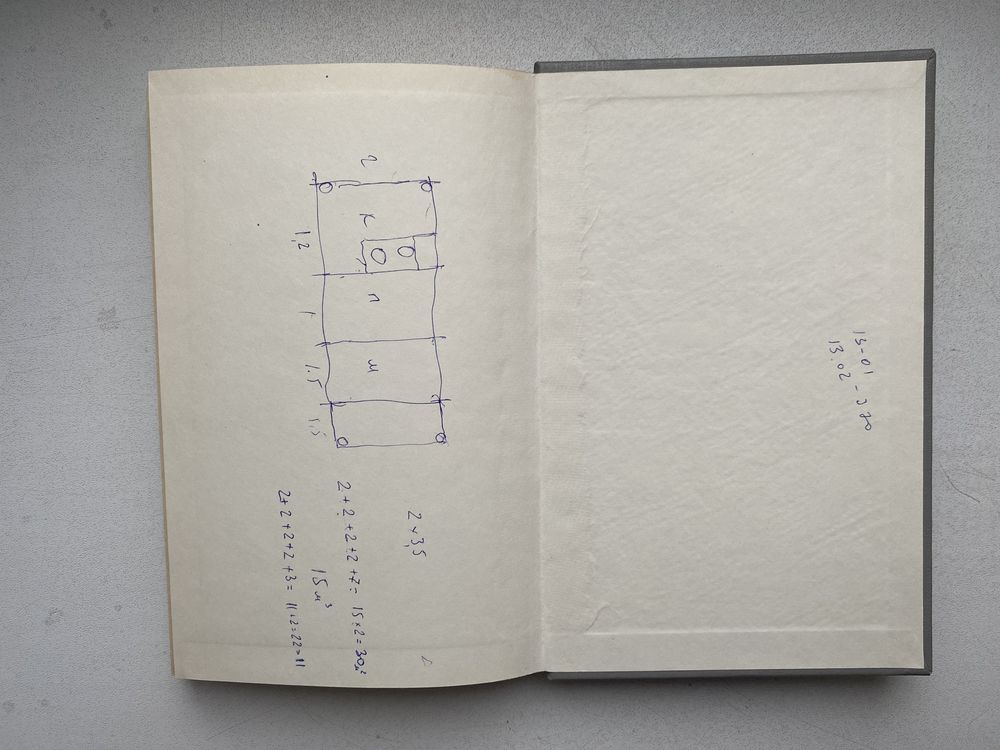 13-01
13.02 - 370
2
К
1,2
П
1
М
1.5
1,5
2 x 3,5
2 + 2 + 2 + 2 + 7 = 15 x 2 = 30 м²
15 м³
2 + 2 + 2 + 2 + 3 = 11 x 2 = 22 = 11